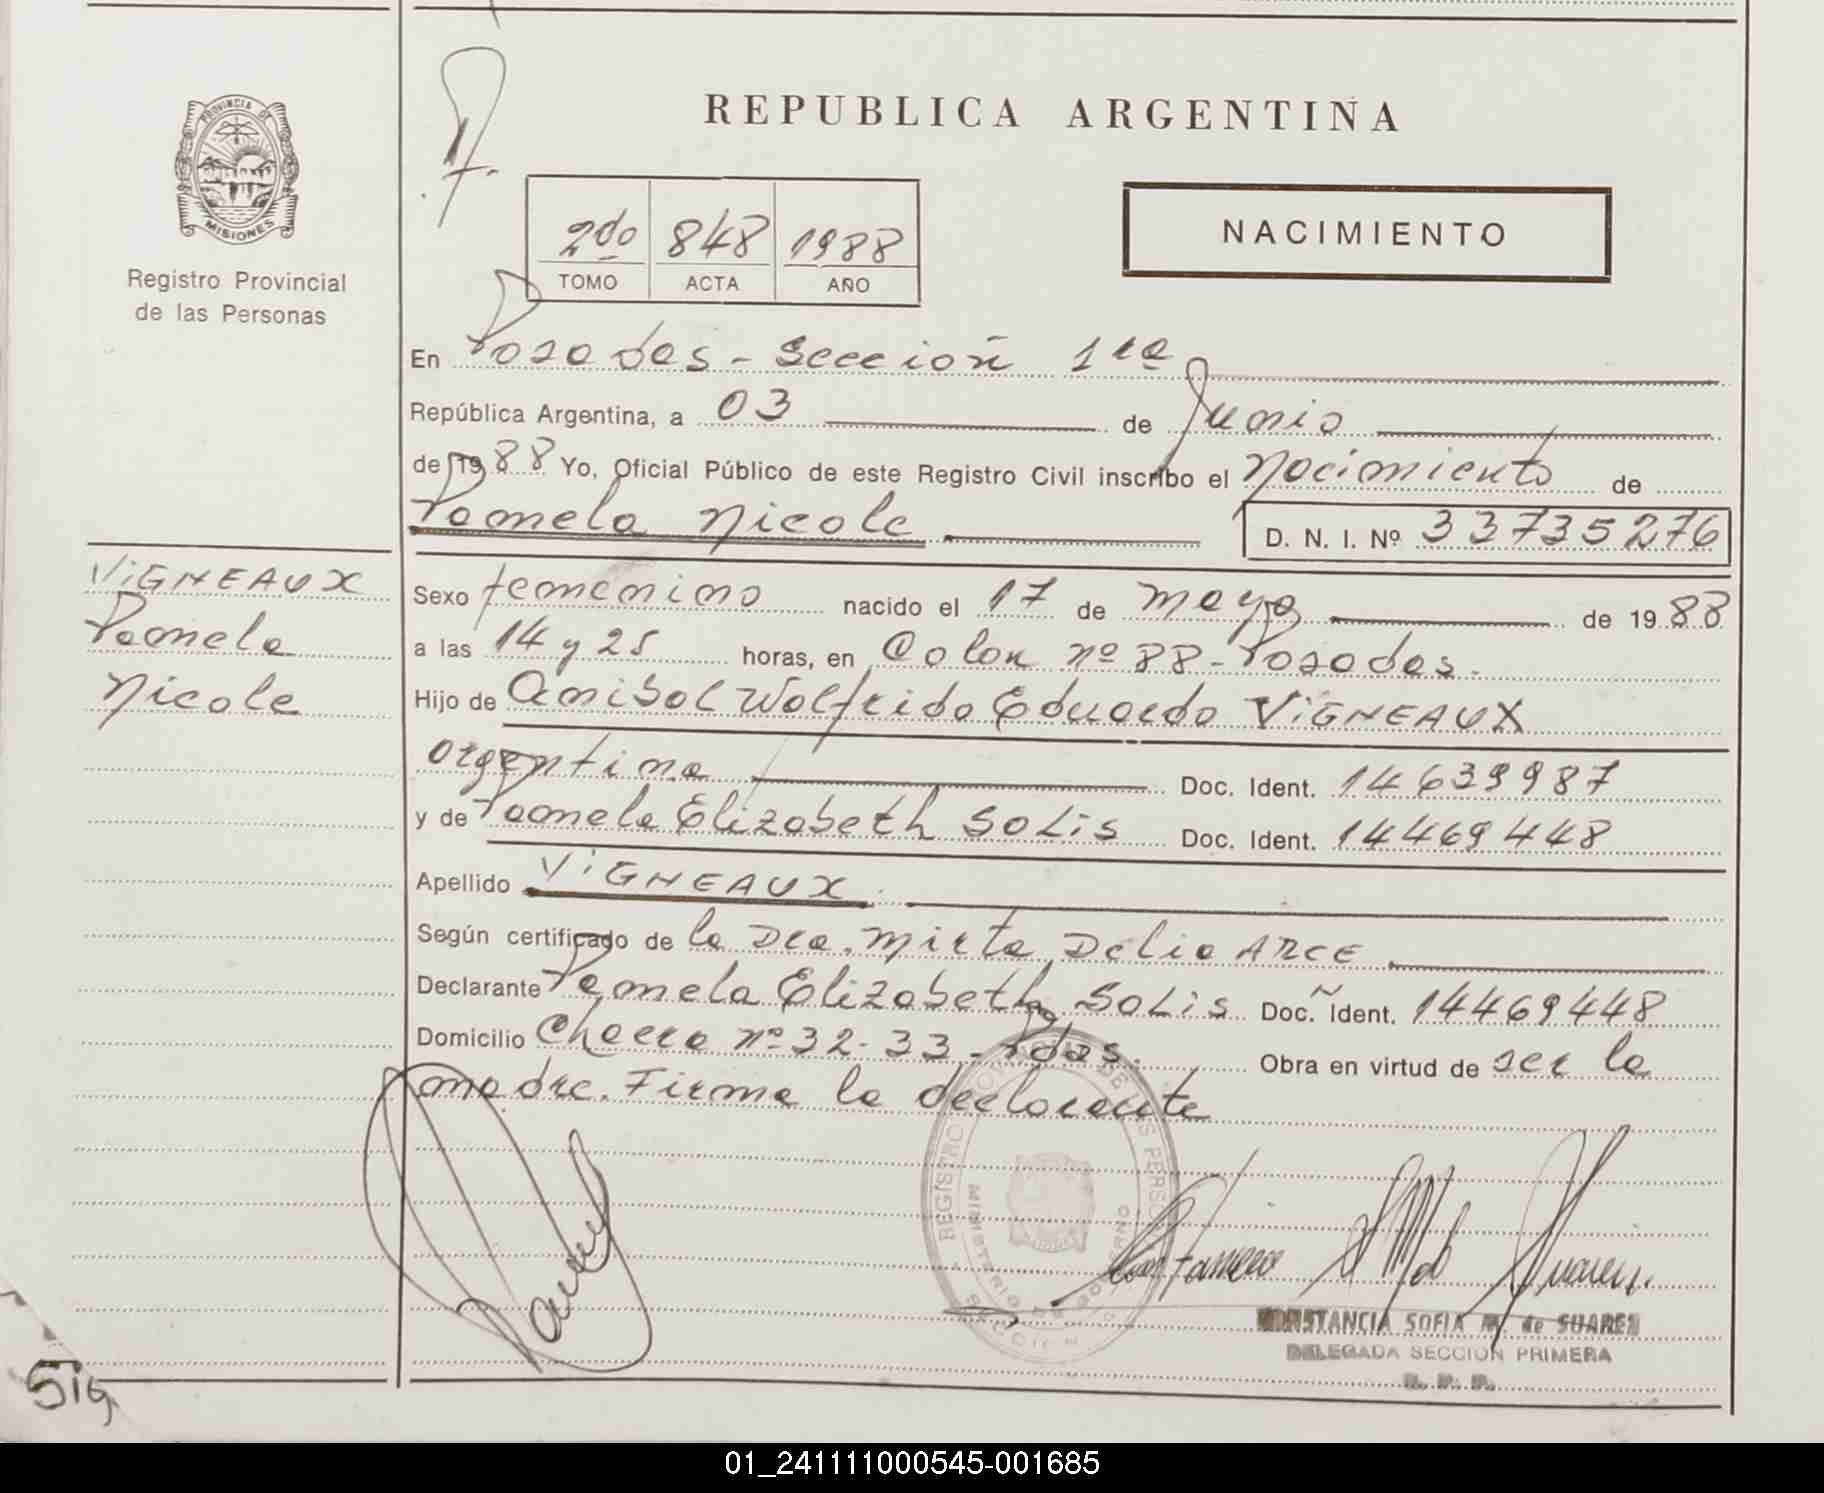 REPUBLICA ARGENTINA
PROVINCIA DE
MISIONES
Registro Provincial
de las Personas
2do 848 1988
TOMO ACTA AÑO
NACIMIENTO
En Posadas - Sección 1ra
República Argentina, a 03 de Junio
de 1988 Yo, Oficial Público de este Registro Civil inscribo el Nacimiento de
Pamela Nicole D. N. I. Nº 33735276
VIGNEAUX
Pamela
Nicole
Sexo femenino nacido el 17 de mayo de 1988
a las 14 y 25 horas, en Colon nº 88 - Posadas.
Hijo de Anibal Wolfrido Eduardo VIGNEAUX
argentina Doc. Ident. 14639987
y de Pamela Elizabeth SOLIS Doc. Ident. 14469448
Apellido VIGNEAUX
Según certificado de la Dra. Mirta Delia ARCE
Declarante Pamela Elizabeth SOLIS Doc. Ident. 14469448
Domicilio Chacra nº 32-33 - Pdas. Obra en virtud de ser la
madre. Firma la declarante
REGISTRO PROVINCIAL DE LAS PERSONAS
MINISTERIO DE GOBIERNO
SECCION
CONSTANCIA SOFIA M. de SUAREZ
DELEGADA SECCION PRIMERA
R. P. P.
Sig
01_241111000545-001685